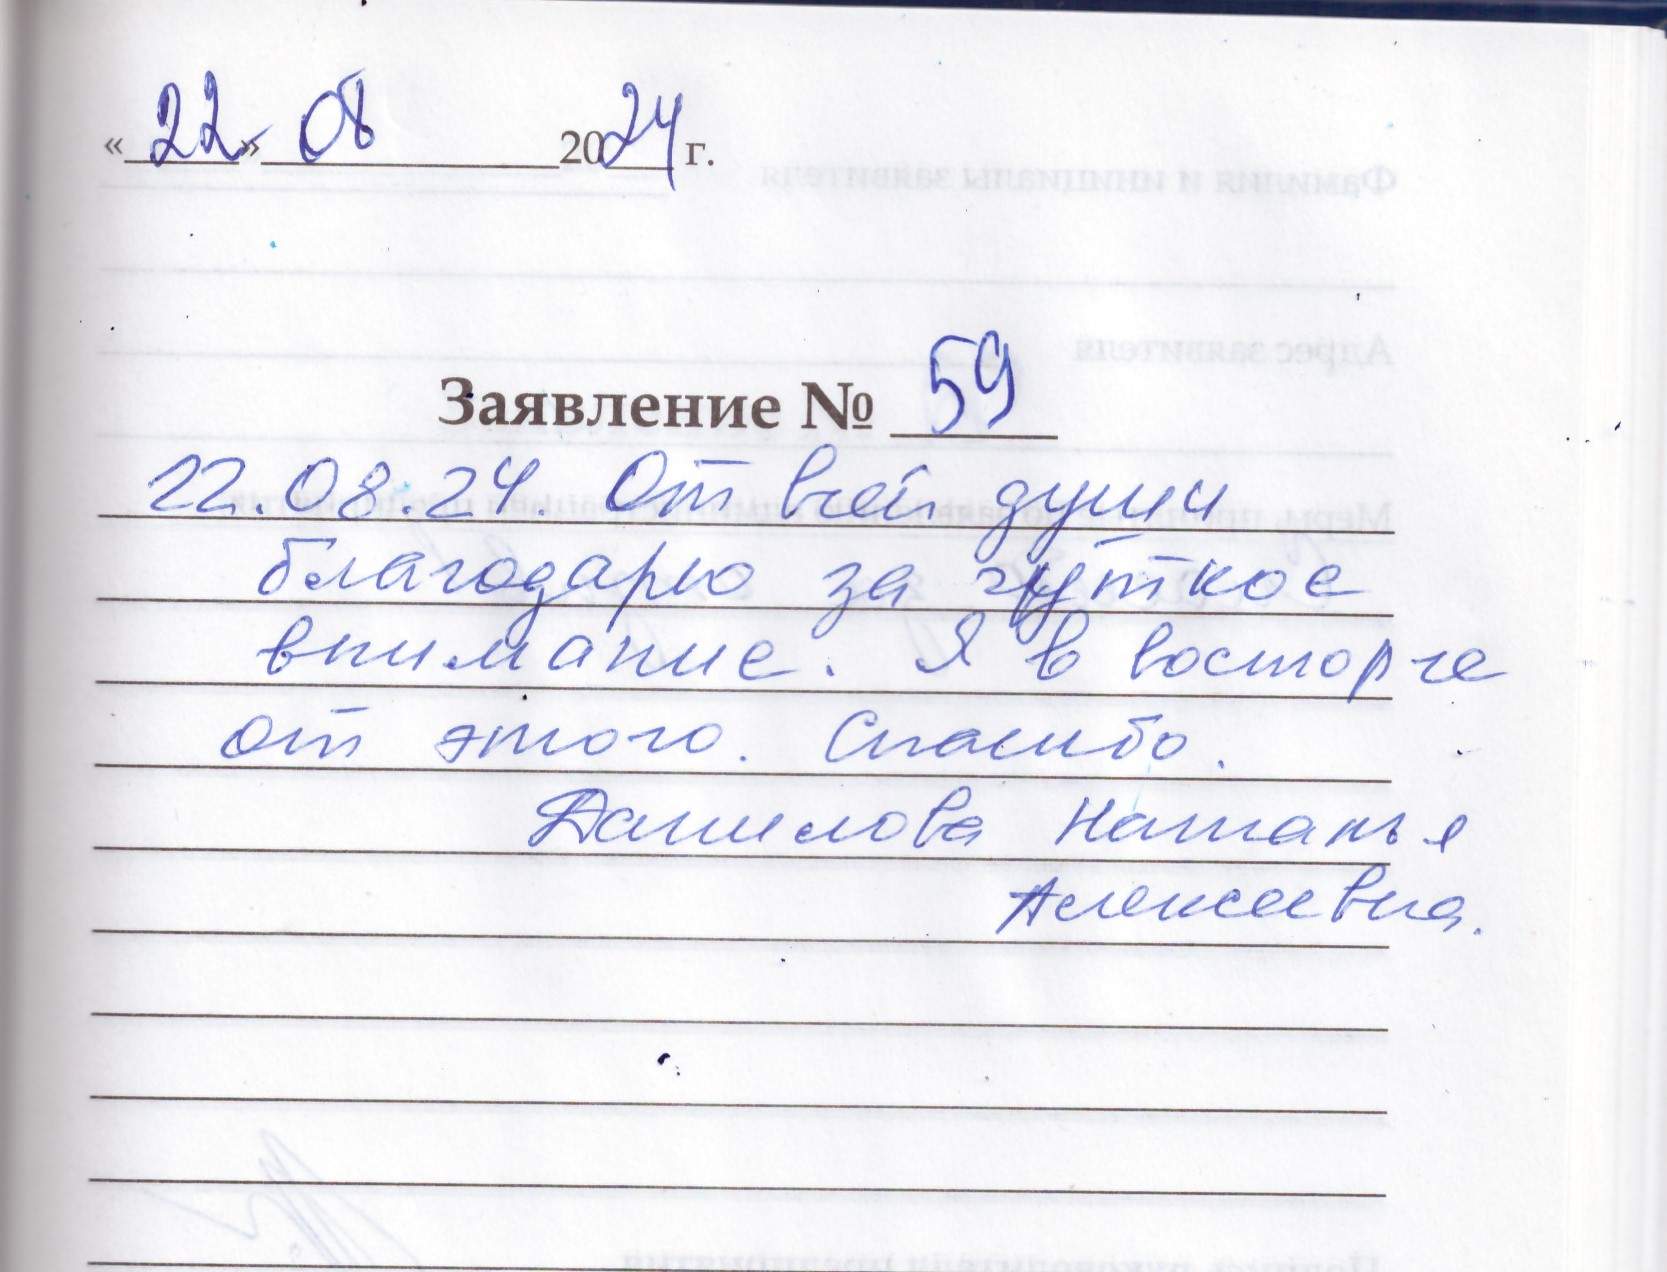 «22» 08 2024 г.
Заявление № 59
22.08.24. От всей души
благодарю за чуткое
внимание. Я в восторге
от этого. Спасибо.
Данилова Наталья
Алексеевна.